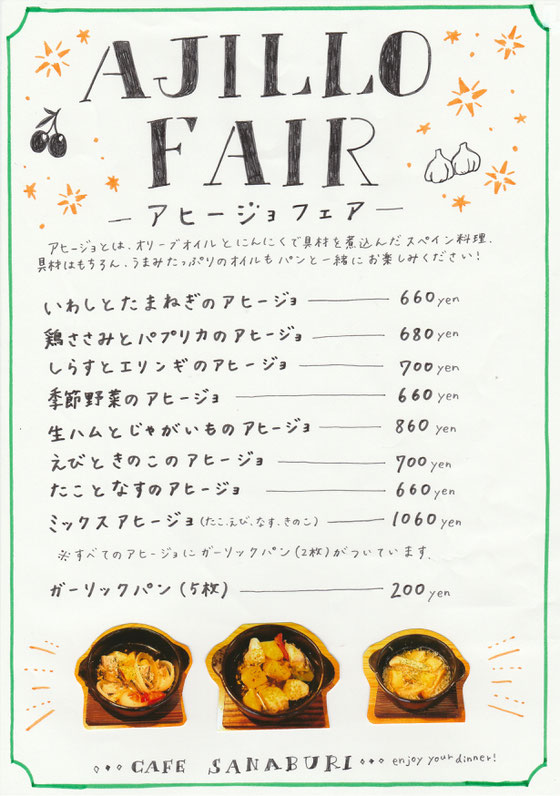 AJILLO
FAIR
ーアヒージョフェアー
アヒージョとは、オリーブオイルとにんにくで具材を煮込んだスペイン料理、
具材はもちろん、うまみたっぷりのオイルもパンと一緒にお楽しみください!
いわしとたまねぎのアヒージョ 660yen
鶏ささみとパプリカのアヒージョ 680yen
しらすとエリンギのアヒージョ 700yen
季節野菜のアヒージョ 660yen
生ハムとじゃがいものアヒージョ 860yen
えびときのこのアヒージョ 700yen
たことなすのアヒージョ 660yen
ミックスアヒージョ(たこ、えび、なす、きのこ) 1060yen
※すべてのアヒージョにガーリックパン(2枚)がついています。
ガーリックパン(5枚) 200yen
CAFE SANABURI enjoy your dinner!